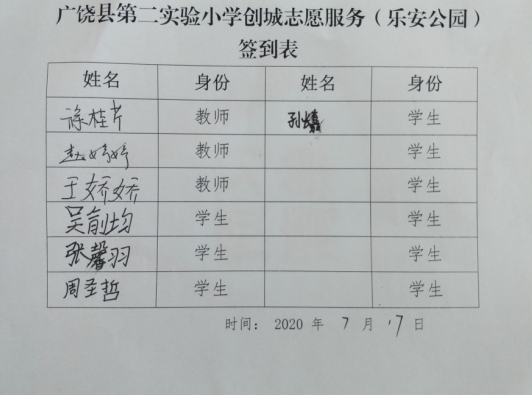 广饶县第二实验小学创城志愿服务（乐安公园）
签到表
姓名 身份 姓名 身份
徐桂芹 教师 学生
教师 学生
王娇娇 教师 学生
学生 学生
张馨羽 学生 学生
周圣哲 学生 学生
时间： 2020 年 7 月 17 日